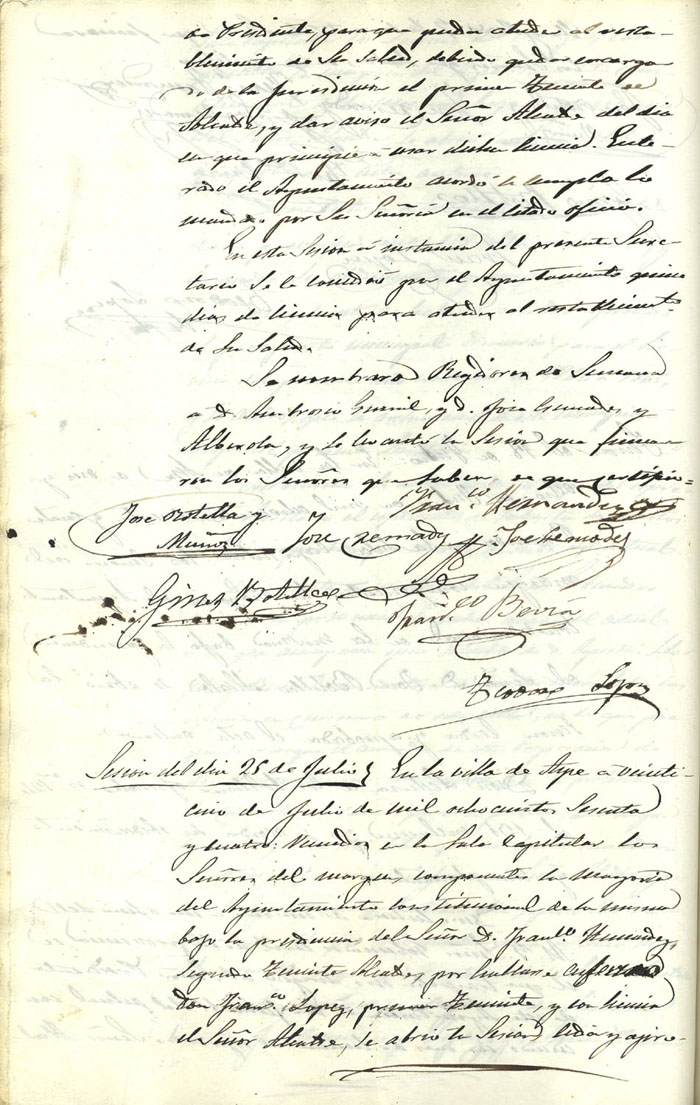 do Presidente, para que pueda atender al resta-
blecimiento de Su Salud, debiendo quedar encarga-
do de la Jurisdiccion el primer Teniente de
Alcalde, y dar aviso el Señor Alcalde del dia
en que principie á usar dicha licencia. Ente-
rado el Ayuntamiento acordó se cumpla lo
mandado por Su Señoría en el citado oficio.
En esta Sesion á instancia del presente Secre-
tario se le concedió por el Ayuntamiento quince
dias de licencia para atender al restablecimiento
de Su Salud.
Se nombraron Regidores de Semana
a D. Ambrosio y D. José y
Alberola, y se levantó la Sesion que firma-
ron los Señores que saben, de que certifico.
Franco. Hernandez
Jose Botella y
Muñoz José Cremades José
Gines Botella
Franco. Beviá
Teodoro Lopez
Sesion del dia 25 de Julio En la villa de Aspe á veinti-
cinco de Julio de mil ochocientos Sesenta
y cuatro: Reunidos en la Sala Capitular los
Señores del margen, componentes la mayoria
del Ayuntamiento Constitucional de la misma
bajo la presidencia del Señor D. Franco. Hernandez,
Segundo Teniente Alcalde, por hallarse enfermo
don Franco. Lopez, primer Teniente, y con licencia
el Señor Alcalde, se abrio la Sesion, leida y apro-